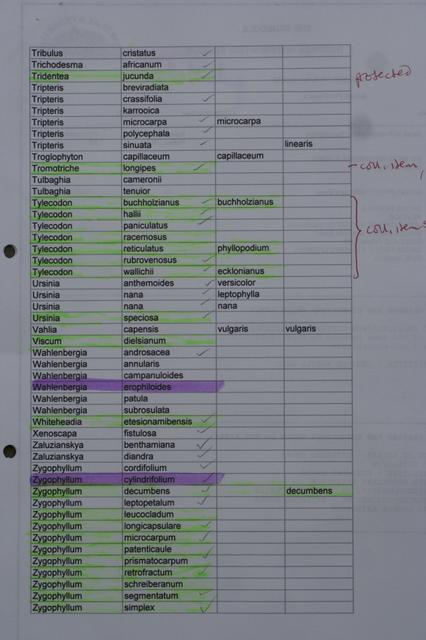 Tribulus cristatus
Trichodesma africanum
Tridentea jucunda protected
Tripteris breviradiata
Tripteris crassifolia
Tripteris karrooica
Tripteris microcarpa microcarpa
Tripteris polycephala
Tripteris sinuata linearis
Troglophyton capillaceum capillaceum
Tromotriche longipes - coll. item,
Tulbaghia cameronii
Tulbaghia tenuior
Tylecodon buchholzianus buchholzianus
Tylecodon hallii
Tylecodon paniculatus coll. item
Tylecodon racemosus
Tylecodon reticulatus phyllopodium
Tylecodon rubrovenosus
Tylecodon wallichii ecklonianus
Ursinia anthemoides versicolor
Ursinia nana leptophylla
Ursinia nana nana
Ursinia speciosa
Vahlia capensis vulgaris vulgaris
Viscum dielsianum
Wahlenbergia androsacea
Wahlenbergia annularis
Wahlenbergia campanuloides
Wahlenbergia erophiloides
Wahlenbergia patula
Wahlenbergia subrosulata
Whiteheadia etesionamibensis
Xenoscapa fistulosa
Zaluzianskya benthamiana
Zaluzianskya diandra
Zygophyllum cordifolium
Zygophyllum cylindrifolium
Zygophyllum decumbens decumbens
Zygophyllum leptopetalum
Zygophyllum leucocladum
Zygophyllum longicapsulare
Zygophyllum microcarpum
Zygophyllum patenticaule
Zygophyllum prismatocarpum
Zygophyllum retrofractum
Zygophyllum schreiberanum
Zygophyllum segmentatum
Zygophyllum simplex